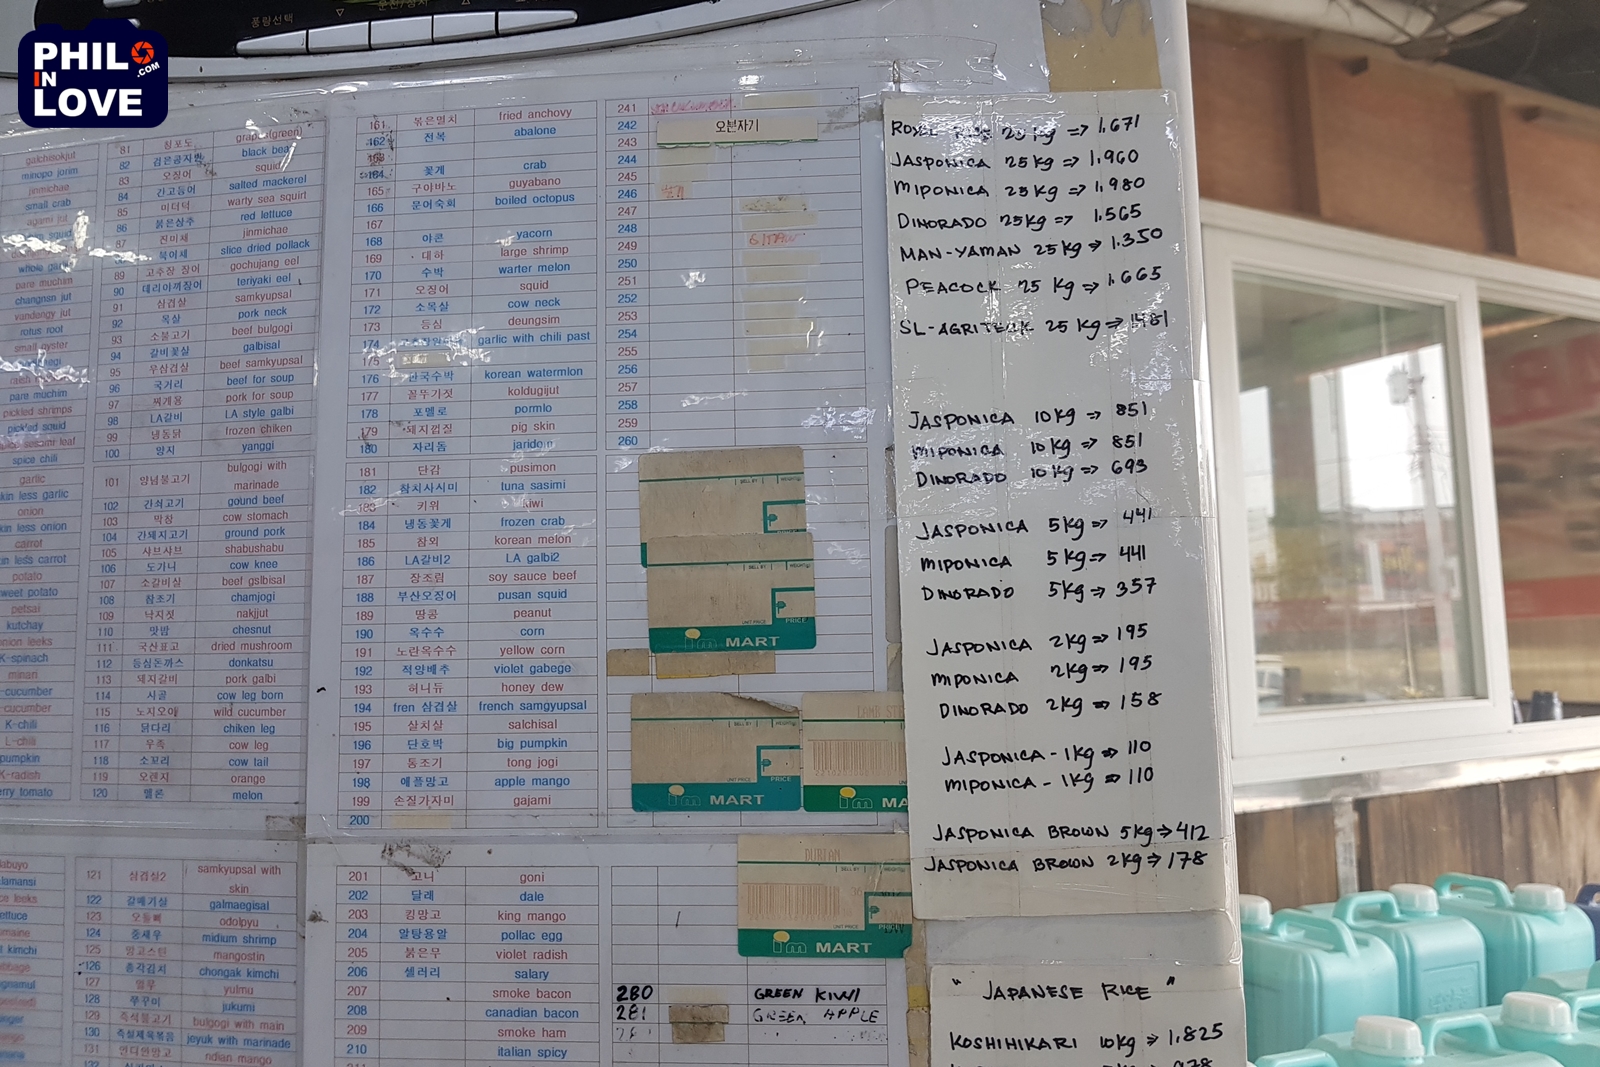 PHIL
IN
LOVE
.COM
풍량선택
galchisokjut
minopo jorim
jinmichae
small crab
agami jut
whole garlic
pare muchim
changnan jut
rotus root
small oyster
pare muchim
pickled shrimps
pickled squid
spice chili
garlic
onion
carrot
potato
petsai
kutchay
K-spinach
minari
K-chili
L-chili
K-radish
81 청포도 grape(green)
82 검은콩자반 black bean
83 오징어 squid
84 간고등어 salted mackerel
85 미더덕 warty sea squirt
86 붉은상추 red lettuce
87 진미채 jinmichae
북어채 slice dried pollack
89 고추장 장어 gochujang eel
90 데리야끼장어 teriyaki eel
91 삼겹살 samkyupsal
92 목살 pork neck
93 소불고기 beef bulgogi
94 갈비꽃살 galbisal
95 우삼겹살 beef samkyupsal
96 국거리 beef for soup
97 찌개용 pork for soup
98 LA갈비 LA style galbi
99 냉동닭 frozen chiken
100 양지 yanggi
101 양념불고기 bulgogi with marinade
102 간쇠고기 gound beef
103 막창 cow stomach
104 간돼지고기 ground pork
105 샤브샤브 shabushabu
106 도가니 cow knee
107 소갈비살 beef gslbisal
108 참조기 chamjogi
109 낙지젓 nakjjut
110 맛밤 chesnut
111 국산표고 dried mushroom
112 등심돈까스 donkatsu
113 돼지갈비 pork galbi
114 사골 cow leg born
115 노지오이 wild cucumber
116 닭다리 chiken leg
117 우족 cow leg
118 소꼬리 cow tail
119 오렌지 orange
120 멜론 melon
121 삼겹살2 samkyupsal with skin
122 갈매기살 galmaegisal
123 오돌뼈 odolpyu
124 중새우 midium shrimp
125 망고스틴 mangostin
126 총각김치 chongak kimchi
127 열무 yulmu
128 쭈꾸미 jukumi
129 즉석불고기 bulgogi with main
130 즉석제육볶음 jeyuk with marinade
131 인디안망고 ndian mango
161 볶은멸치 fried anchovy
162 전복 abalone
164 꽃게 crab
165 구야바노 guyabano
166 문어숙회 boiled octopus
167
168 야콘 yacorn
169 대하 large shrimp
170 수박 warter melon
171 오징어 squid
172 소목살 cow neck
173 등심 deungsim
174 garlic with chili past
175
176 한국수박 korean watermlon
177 꼴뚜기젓 koldugijut
178 포멜로 pormlo
179 돼지껍질 pig skin
180 자리돔 jaridom
181 단감 pusimon
182 참치사시미 tuna sasimi
183 키위 kiwi
184 냉동꽃게 frozen crab
185 참외 korean melon
186 LA갈비2 LA galbi2
187 장조림 soy sauce beef
188 부산오징어 pusan squid
189 땅콩 peanut
190 옥수수 corn
191 노란옥수수 yellow corn
192 적양배추 violet gabege
193 허니듀 honey dew
194 fren 삼겹살 french samgyupsal
195 살치살 salchisal
196 단호박 big pumpkin
197 통조기 tong jogi
198 애플망고 apple mango
199 손질가자미 gajami
200
201 고니 goni
202 달래 dale
203 킹망고 king mango
204 알탕용알 pollac egg
205 붉은무 violet radish
206 셀러리 salary
207 smoke bacon
208 canadian bacon
209 smoke ham
210 italian spicy
241
242 오분자기
243
244
245
246
247
248
249
250
251
252
253
254
255
256
257
258
259
260
PRICE
UNIT PRICE PRICE
im MART
UNIT PRICE PRICE
im MART
im MA
DURIAN
PRICE
im MART
280 GREEN KIWI
281 GREEN APPLE
ROYAL RICE 25 kg ⇒ 1,671
JASPONICA 25 kg ⇒ 1,960
MIPONICA 25 kg ⇒ 1,980
DINORADO 25kg ⇒ 1,565
MAN-YAMAN 25 kg ⇒ 1,350
PEACOCK 25 kg ⇒ 1,665
SL-AGRITECK 25 kg ⇒ 1481
JASPONICA 10kg ⇒ 851
MIPONICA 10kg ⇒ 851
DINORADO 10kg ⇒ 693
JASPONICA 5kg ⇒ 441
MIPONICA 5kg ⇒ 441
DINORADO 5kg ⇒ 357
JASPONICA 2kg ⇒ 195
MIPONICA 2kg ⇒ 195
DINORADO 2kg ⇒ 158
JASPONICA - 1kg ⇒ 110
MIPONICA - 1kg ⇒ 110
JASPONICA BROWN 5kg ⇒ 412
JASPONICA BROWN 2kg ⇒ 178
" JAPANESE RICE "
KOSHIHIKARI 10kg ⇒ 1,825